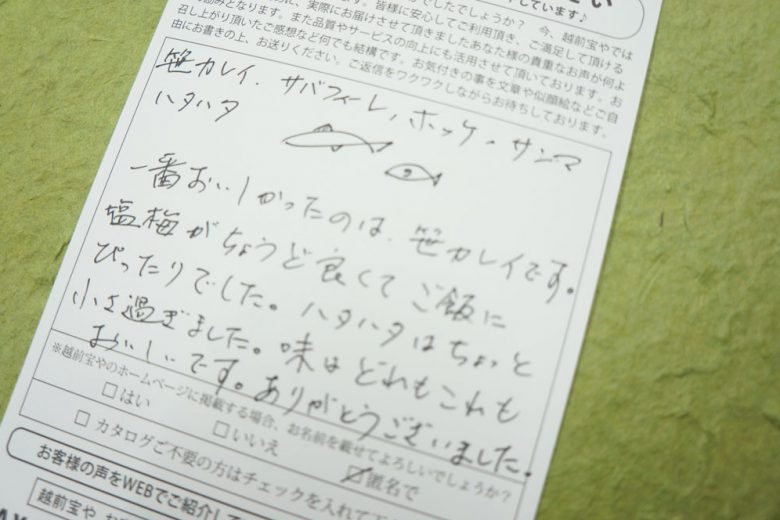 しています♪
でしたでしょうか？ 今、越前宝やでは
実際にお届けさせて頂きましたあなた様の貴重なお声が何よ
皆様に安心してご利用頂き、ご満足して頂ける
召し上がり頂いたご感想など何でも結構です。お気付きの事を文章や似顔絵などご自
由にお書きの上、お送りください。ご返信をワクワクしながらお待ちしております。
また品質やサービスの向上にも活用させて頂いております。お
笹カレイ、サバフィーレ、ホッケ、サンマ
ハタハタ
一番おいしかったのは、笹カレイです。
塩梅がちょうど良くてご飯に
ぴったりでした。ハタハタはちょっと
小さ過ぎました。味はどれもこれも
おいしいです。ありがとうございました。
※越前宝やのホームページに掲載する場合、お名前を載せてよろしいでしょうか？
□はい □いいえ 匿名で
□ カタログご不要の方はチェックを入れて下
お客様の声をWEBでご紹介して
越前宝や お